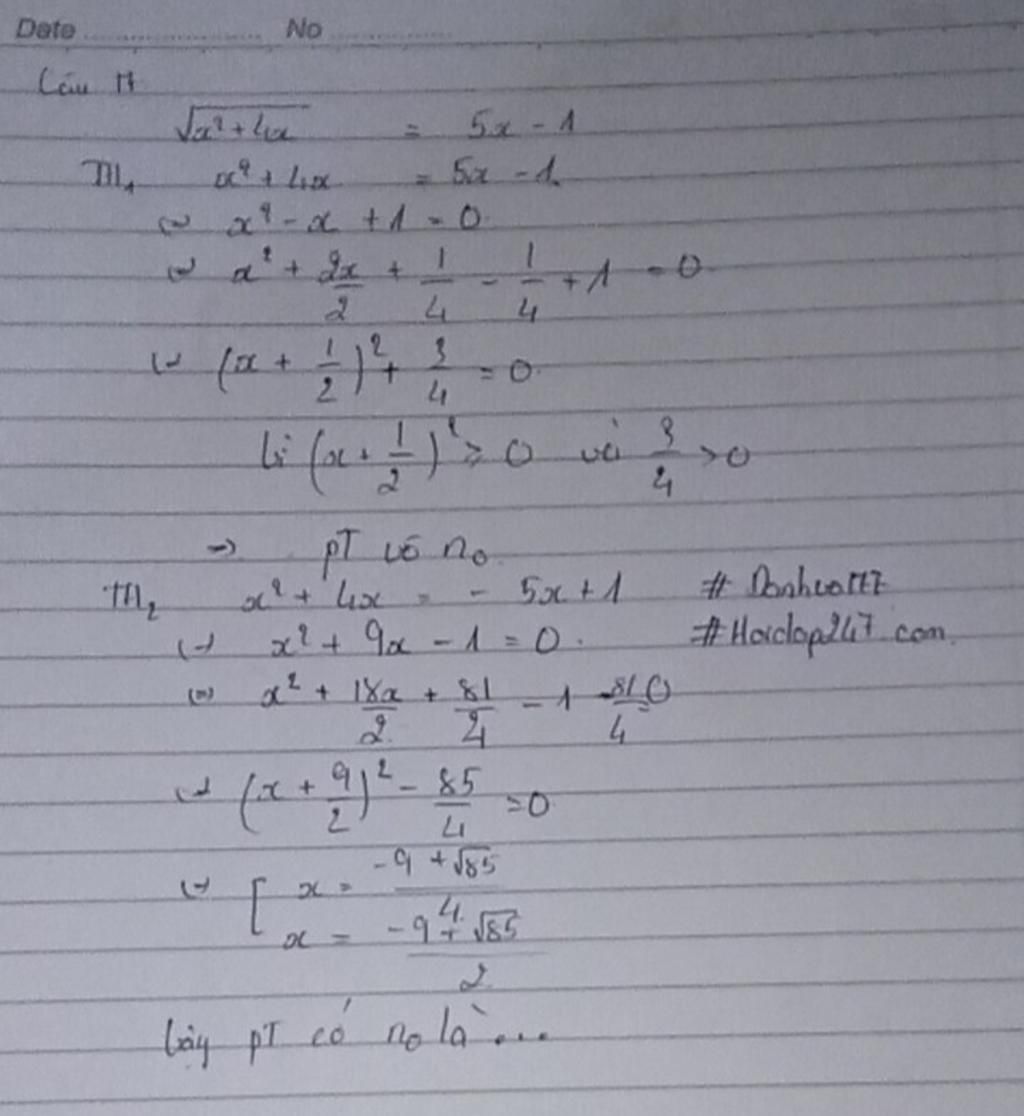 Date ................ No ................
Câu 17
√(x²+4x) = 5x - 1
TH₁ x² + 4x = 5x - 1
⇔ x² - x + 1 = 0
⇔ x² + 2x/2 + 1/4 - 1/4 + 1 = 0
⇔ (x + 1/2)² + 3/4 = 0
Vì (x + 1/2)² ≥ 0 và 3/4 > 0
⇒ pT vô no
TH₂ x² + 4x = - 5x + 1 #
⇔ x² + 9x - 1 = 0. #Hoidap247.com
⇔ x² + 18x/2 + 81/4 - 1 - 81/4 = 0
⇔ (x + 9/2)² - 85/4 = 0
⇔ [ x = (-9 + √85)/4
x = (-9 + √85)/2
Vậy pT có no là ...